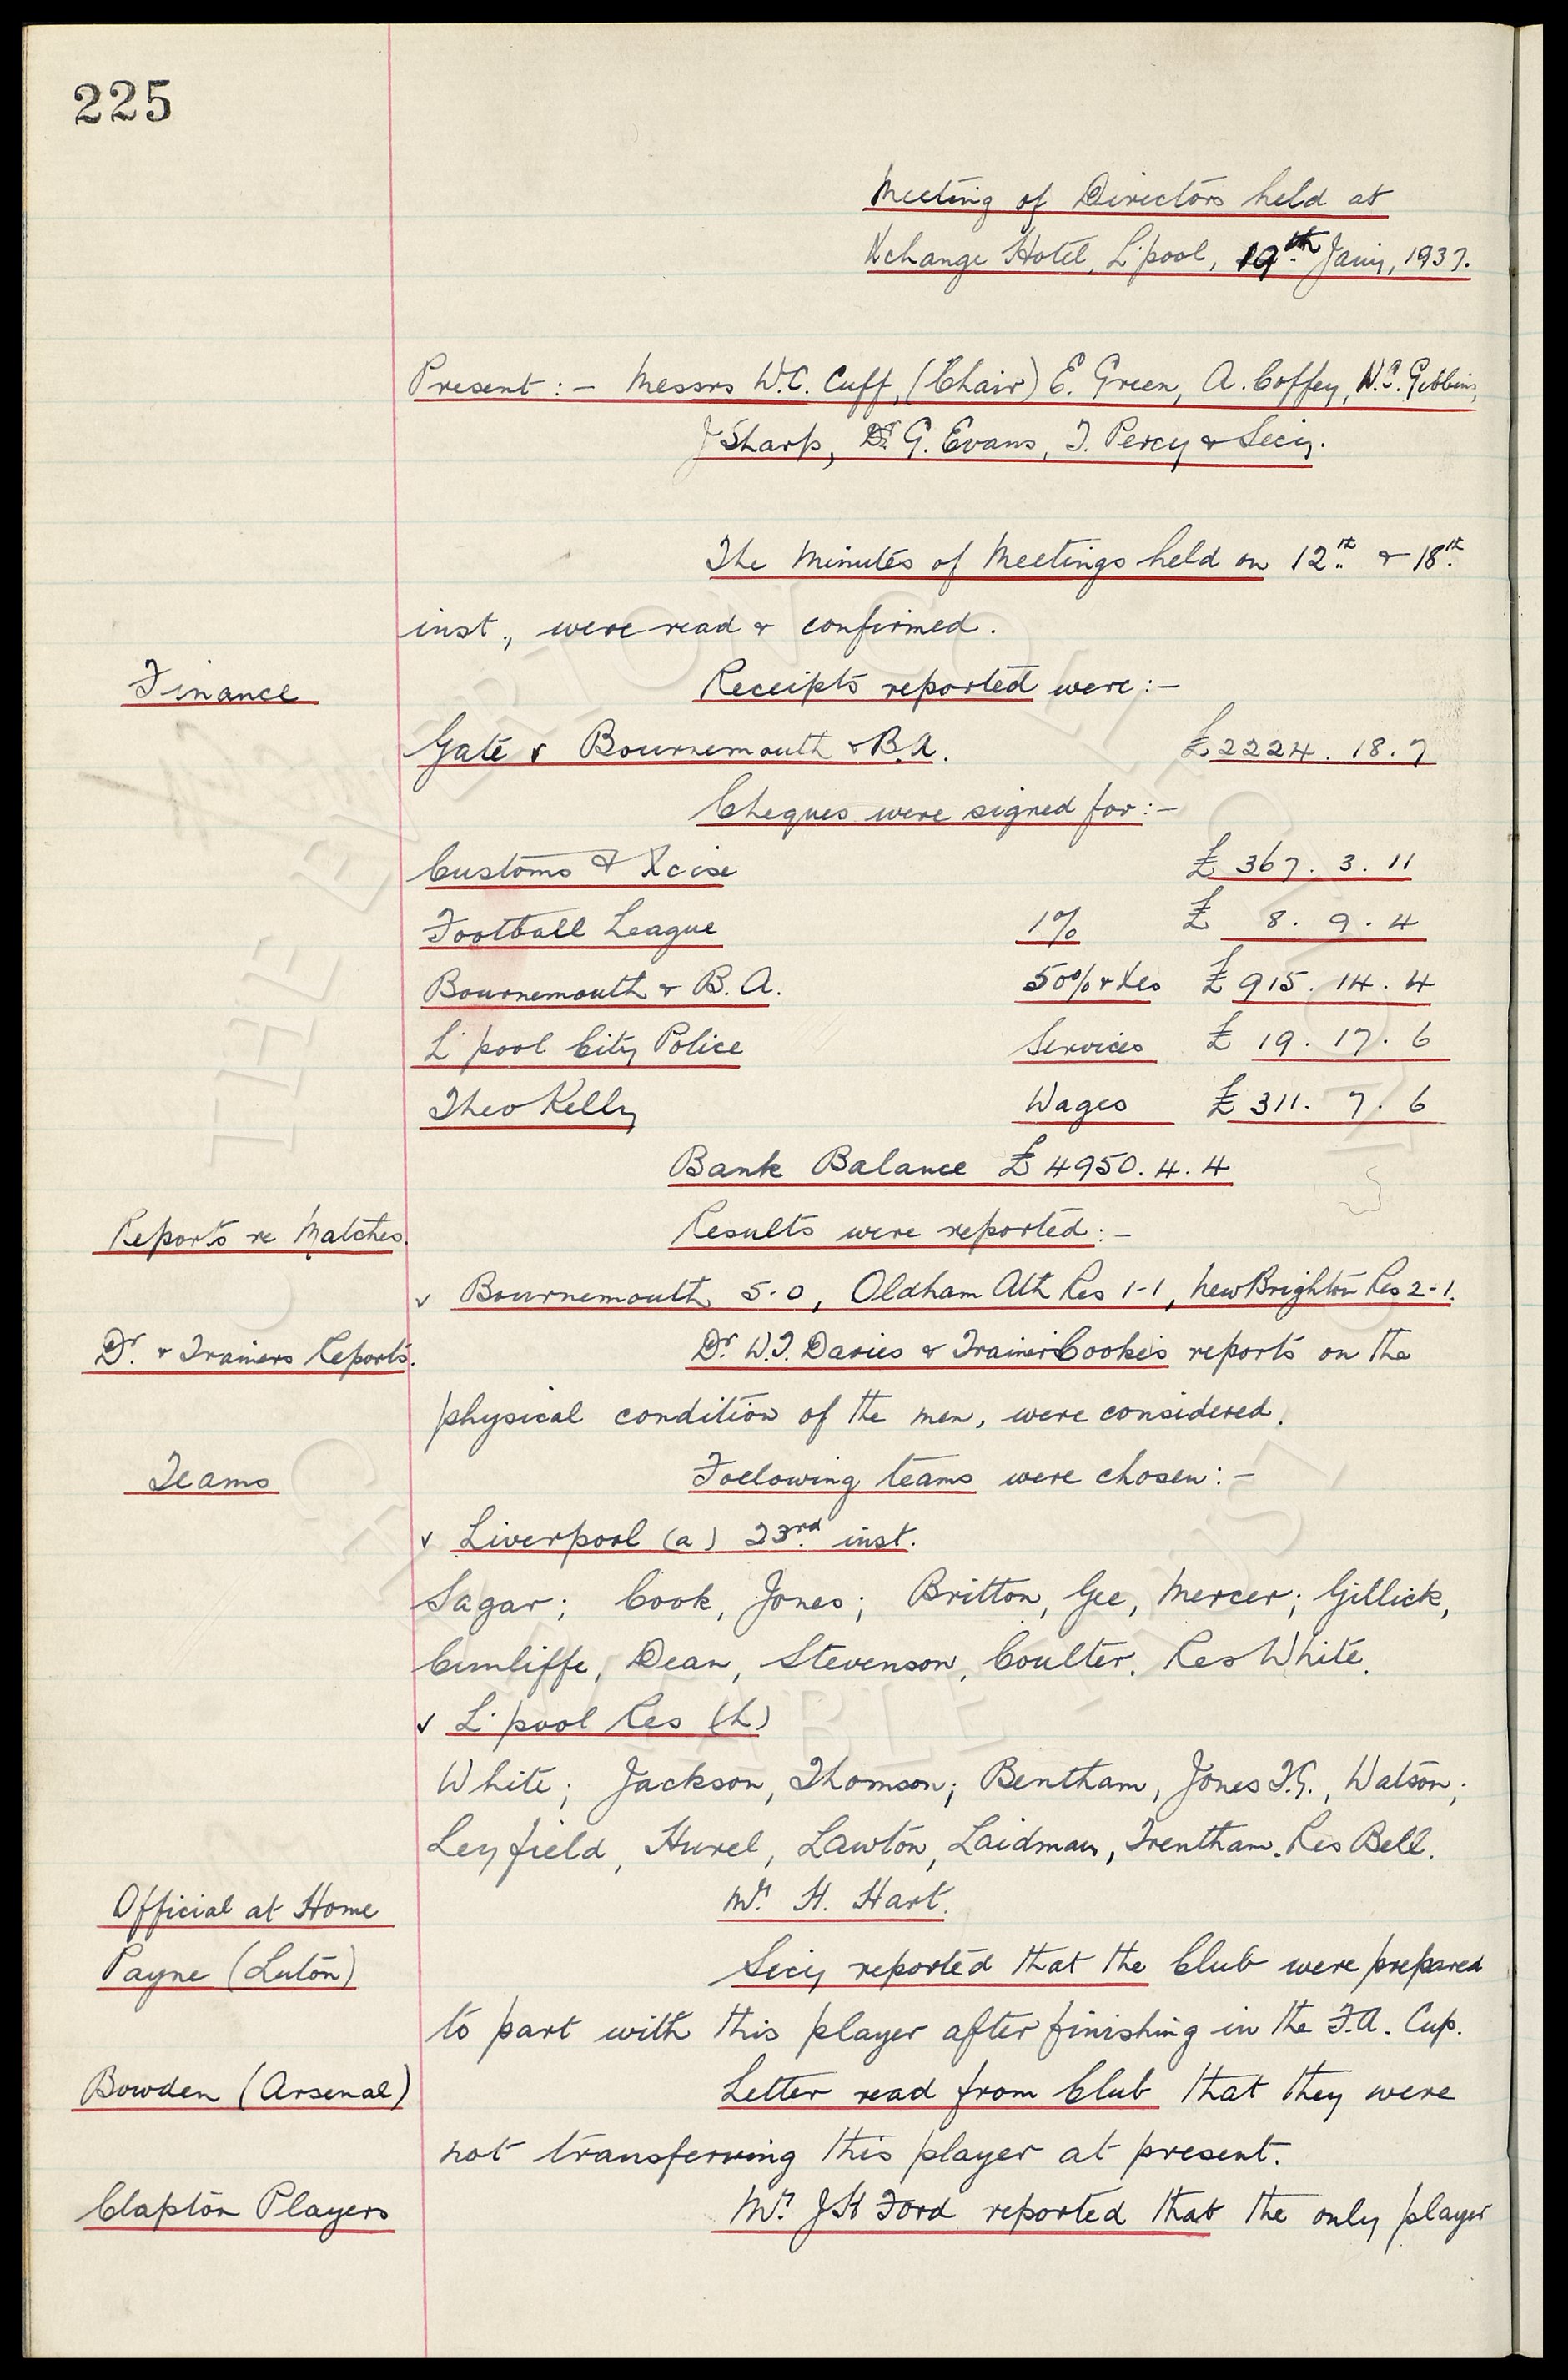 225
Meeting of Directors held at
Xchange Hotel, L'pool, 19th Jany, 1937.
Present :- Messrs W.C. Cuff, (Chair) E. Green, A. Coffey, W.C. Gibbins,
J Sharp, Dr. G. Evans, T. Percy & Secy.
The Minutes of Meetings held on 12th & 18th
inst., were read & confirmed.
Finance
Receipts reported were :-
Gate v Bournemouth & B.A. £2224. 18. 7
Cheques were signed for :-
Customs & Xcise £ 367. 3. 11
Football League 1% £ 8. 9. 4
Bournemouth & B. A. 50% & Xes £ 915. 14. 4
L'pool City Police Services £ 19. 17. 6
Theo Kelly Wages £ 311. 7. 6
Bank Balance £ 4950. 4. 4
Reports re Matches.
Results were reported :-
v Bournemouth 5-0, Oldham Ath Res 1-1, New Brighton Res 2-1.
Dr. & Trainers Reports.
Dr. W.T. Davies & Trainer Cooke's reports on the
physical condition of the men, were considered.
Teams
Following teams were chosen :-
v Liverpool (a) 23rd inst.
Sagar; Cook, Jones; Britton, Gee, Mercer; Gillick,
Cunliffe, Dean, Stevenson, Coulter. Res White.
v L'pool Res (h)
White; Jackson, Thomson; Bentham, Jones T.G., Watson;
Leyfield, Hurel, Lawton, Laidman, Trentham. Res Bell.
Official at Home
Mr. H. Hart.
Payne (Luton)
Secy reported that the Club were prepared
to part with this player after finishing in the F.A. Cup.
Bowden (Arsenal)
Letter read from Club that they were
not transferring this player at present.
Clapton Players
Mr. J H Ford reported that the only player